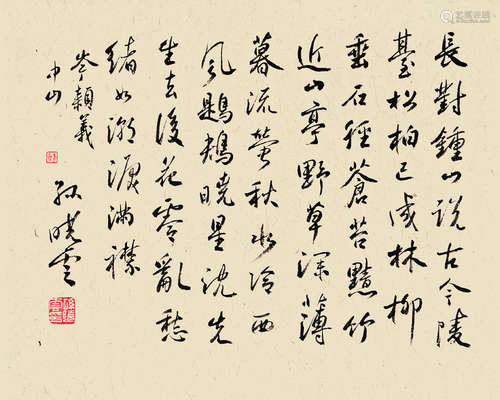 長對鍾山說古今陵
臺松柏已成林柳
垂石徑蒼苔黯竹
近山亭野草深薄
暮流螢秋水冷西
風曉星沈先
生去後花零亂愁
緒如潮淚滿襟
義
中山
孫曉雲